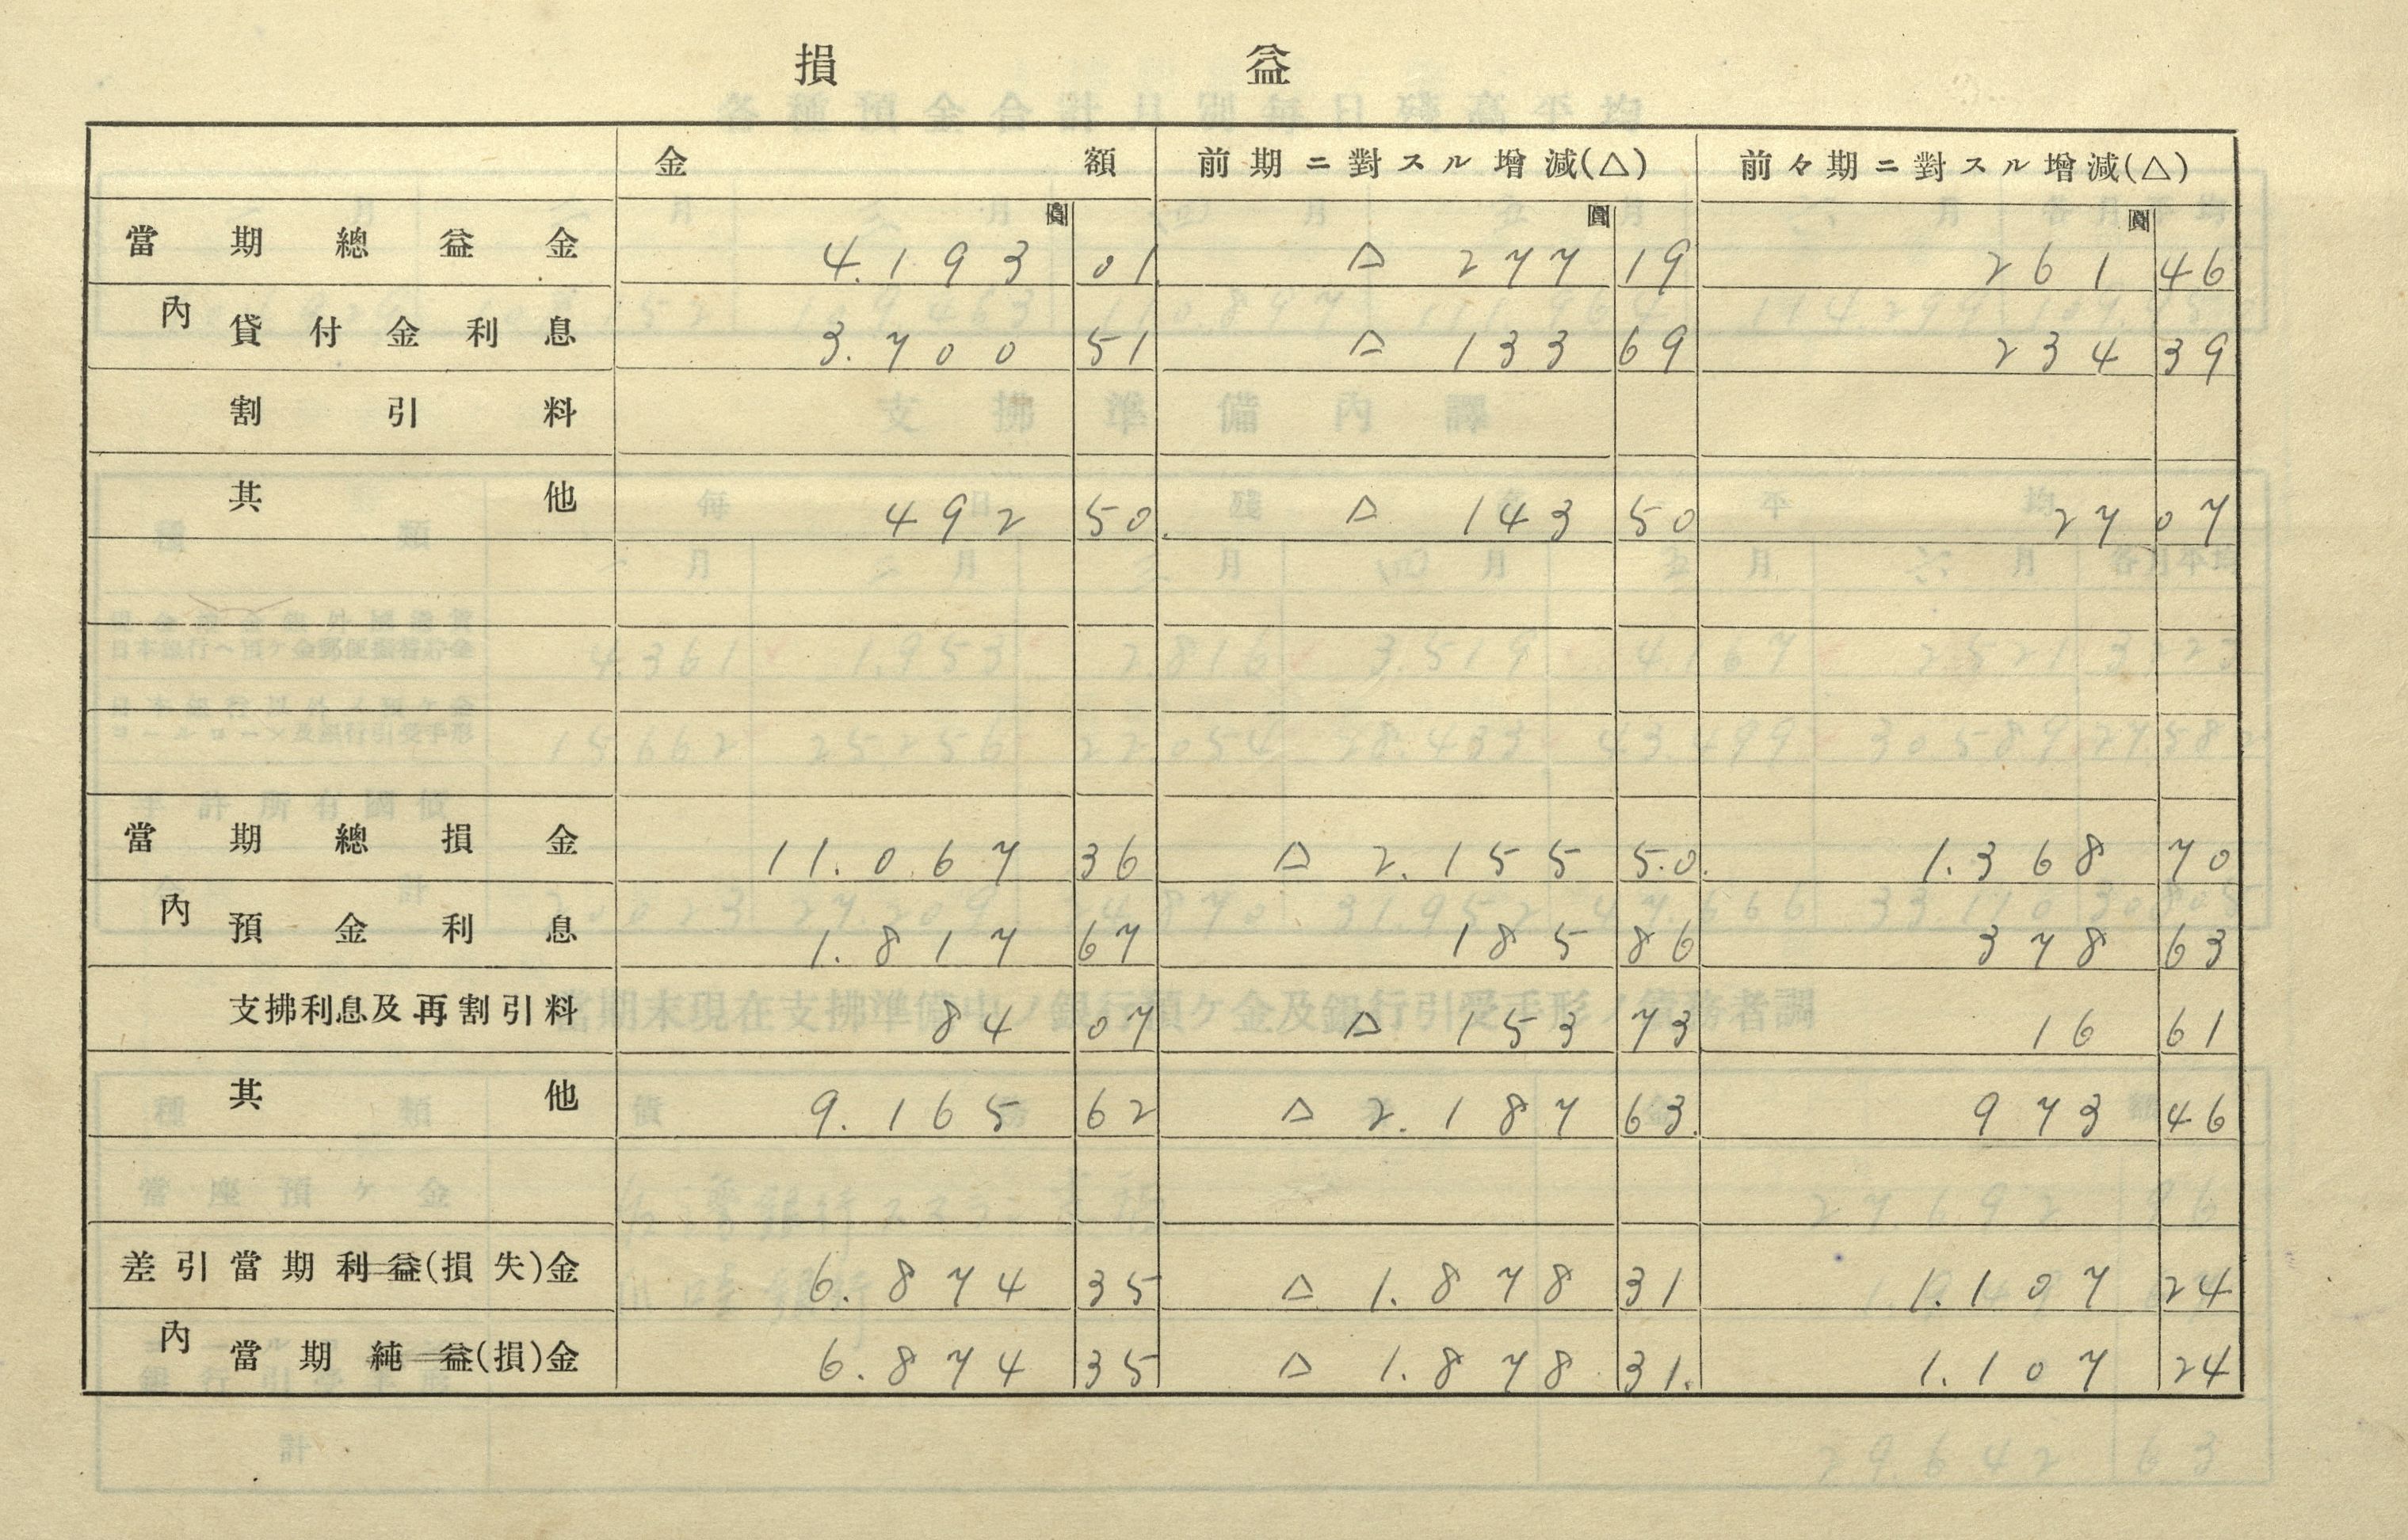 損 益
金 額 前期ニ對スル增減(△) 前々期ニ對スル增減(△)
圓 圓 圓
當期總益金 4.193 01 △ 277 19 261 46
內 貸付金利息 3.700 51 △ 133 69 234 39
割引料
其他 492 50. △ 143 50 27 07
當期總損金 11.067 36 △ 2.155 5.0. 1.368 70
內 預金利息 1.817 67 185 86 378 63
支拂利息及再割引料 84 07 △ 153 73 16 61
其他 9.165 62 △ 2.187 63. 973 46
差引當期利益(損失)金 6.874 35 △ 1.878 31 1.107 24
內 當期純益(損)金 6.874 35 △ 1.878 31. 1.107 24